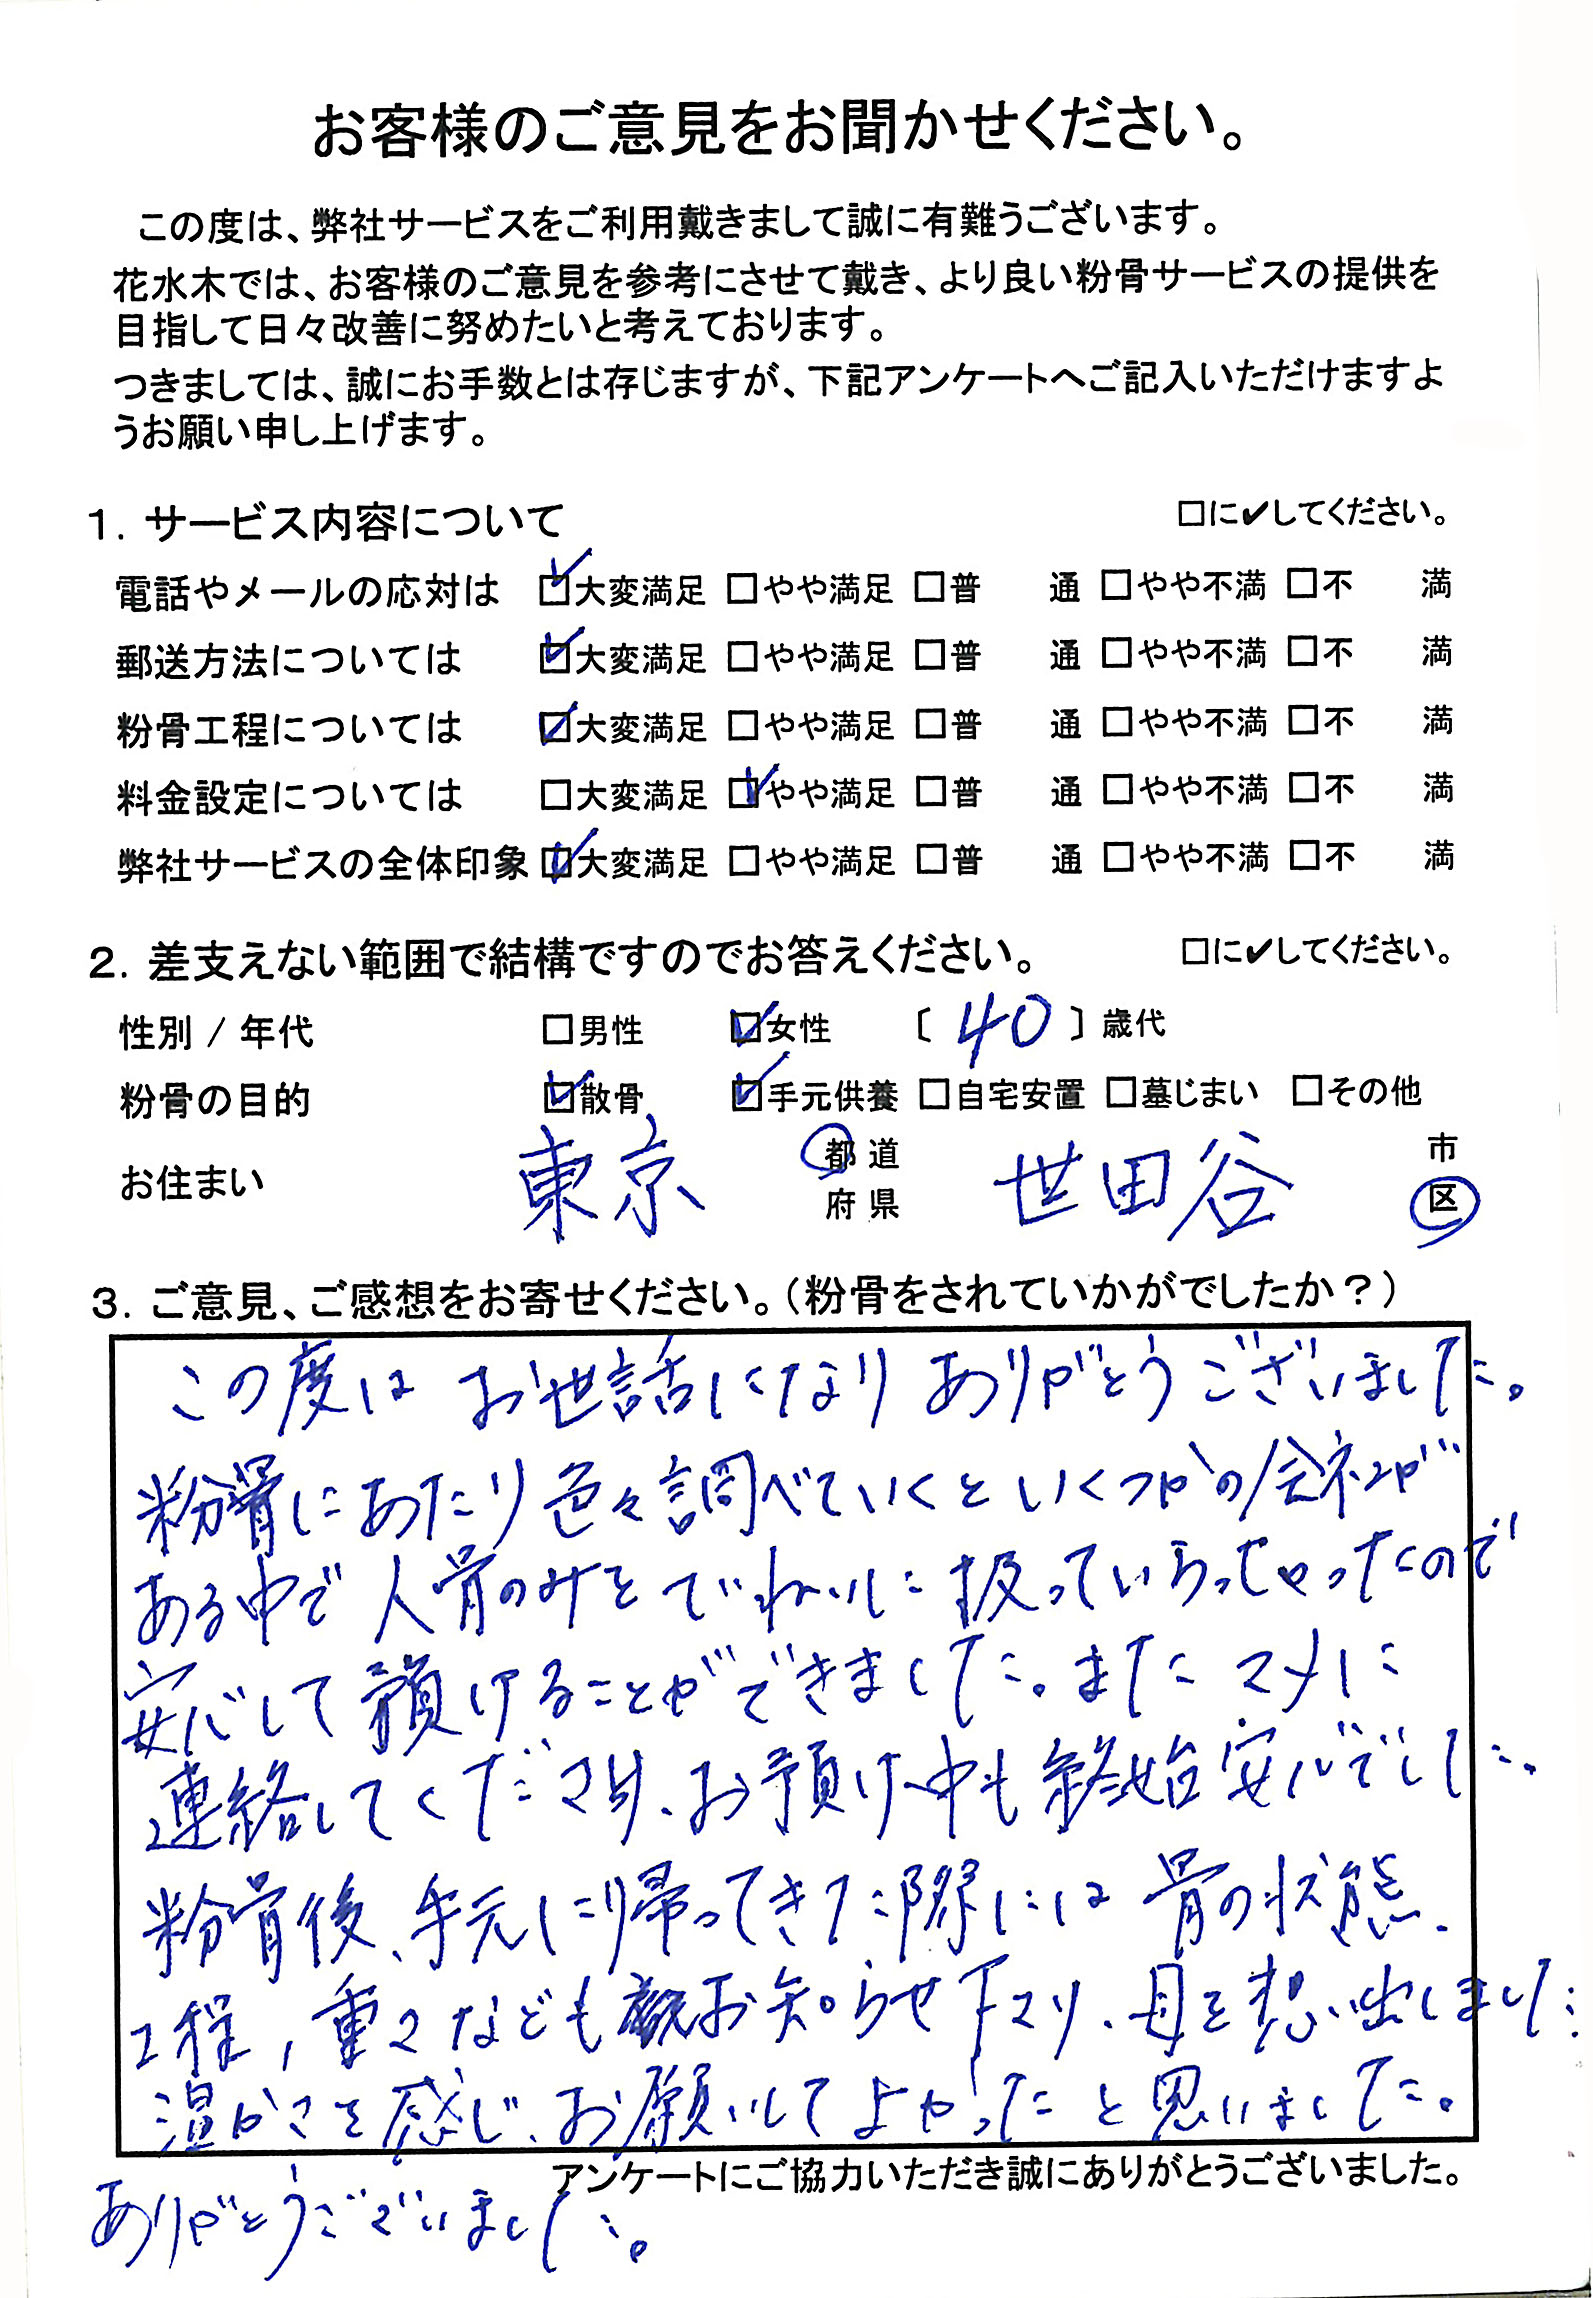 お客様のご意見をお聞かせください。
この度は、弊社サービスをご利用戴きまして誠に有難うございます。
花水木では、お客様のご意見を参考にさせて戴き、より良い粉骨サービスの提供を
目指して日々改善に努めたいと考えております。
つきましては、誠にお手数とは存じますが、下記アンケートへご記入いただけますよ
うお願い申し上げます。
1. サービス内容について □に✔してください。
電話やメールの応対は ☑大変満足 □やや満足 □普 通 □やや不満 □不 満
郵送方法については ☑大変満足 □やや満足 □普 通 □やや不満 □不 満
粉骨工程については ☑大変満足 □やや満足 □普 通 □やや不満 □不 満
料金設定については □大変満足 ☑やや満足 □普 通 □やや不満 □不 満
弊社サービスの全体印象 ☑大変満足 □やや満足 □普 通 □やや不満 □不 満
2. 差支えない範囲で結構ですのでお答えください。 □に✔してください。
性別 / 年代 □男性 ☑女性 〔 40 〕歳代
粉骨の目的 ☑散骨 ☑手元供養 □自宅安置 □墓じまい □その他
お住まい 東京 都道府県 世田谷 市区
3. ご意見、ご感想をお寄せください。（粉骨をされていかがでしたか？）
この度は お世話になり ありがとうございました。
粉骨にあたり 色々調べていくと いくつかの会社が
ある中で 人骨のみを ていねいに 扱っていらっしゃったので
安心して 預けることができました。また マメに
連絡してくださり、お預け中も 終始安心でした。
粉骨後、手元に帰ってきた際には 骨の状態、
工程、重さなども お知らせ下さり、母を想い出しました。
温かさを感じ、お願いしてよかったと思いました。
アンケートにご協力いただき誠にありがとうございました。
ありがとうございました。